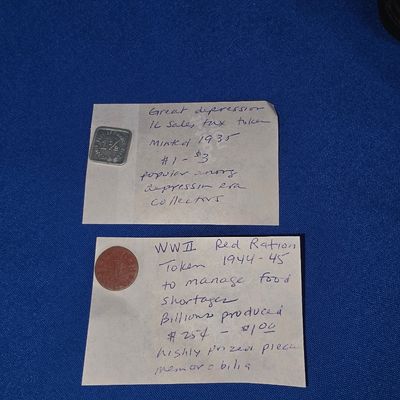 Great depression
IL Sales tax token
Minted 1935
#1 - $3
popular among
depression era
Collectors
WWII Red Ration
Token 1944-45
to manage food
shortages
Billions produced
$ 25¢ - $1.00
highly prized piece
memorabilia